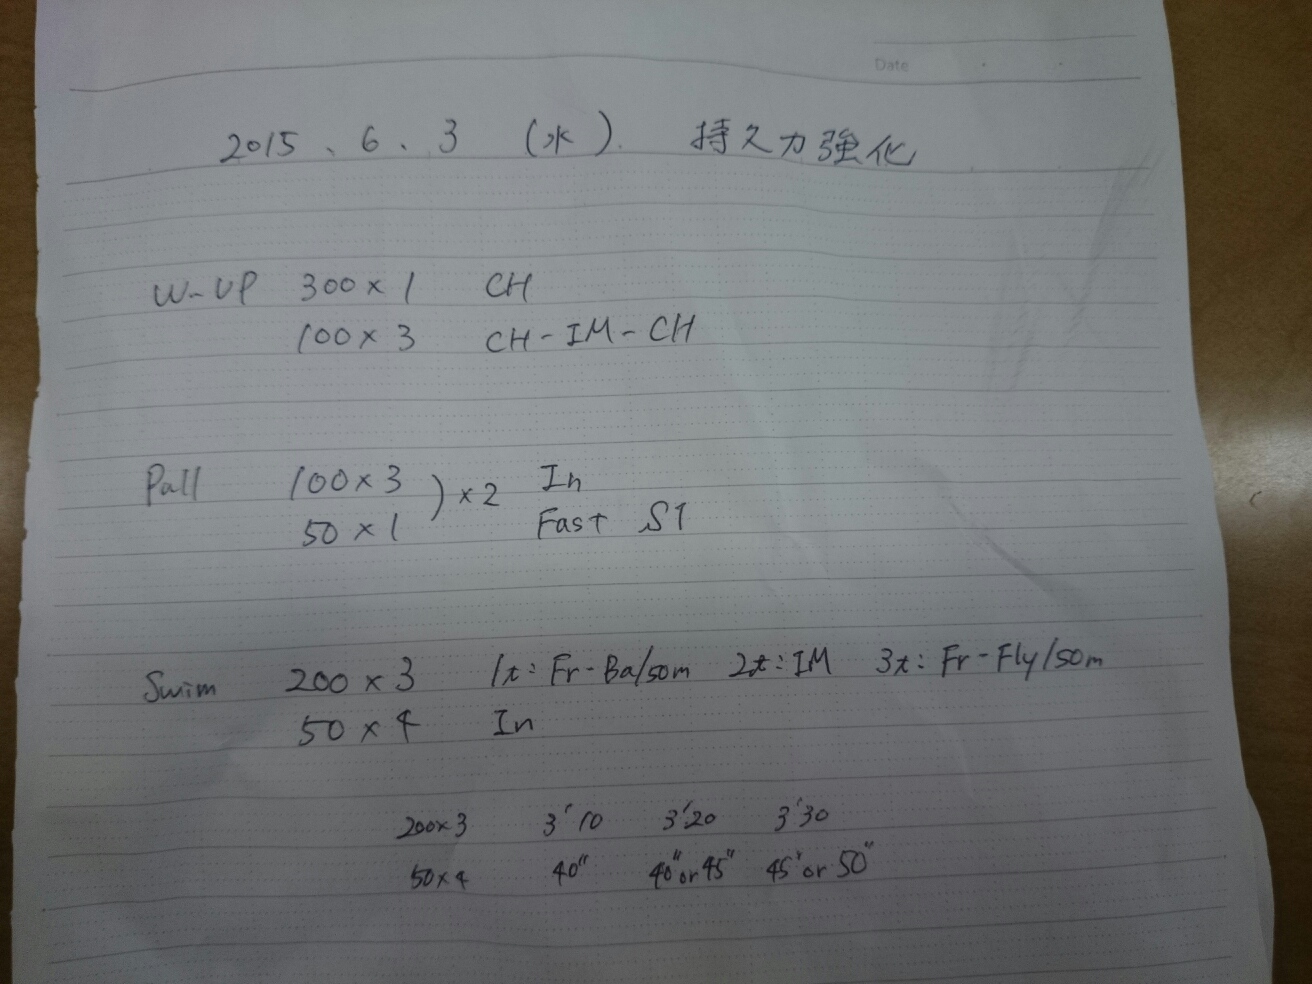 Date
2015、6、3 (水). 持久力強化
W-UP 300×1 CH
100×3 CH-IM-CH
Pall 100×3 ) ×2 In
50×1 Fast S1
Swim 200×3 1t: Fr-Ba/50m 2t: IM 3t: Fr-Fly/50m
50×4 In
200×3 3'10 3'20 3'30
50×4 40" 40"or 45" 45'or 50"